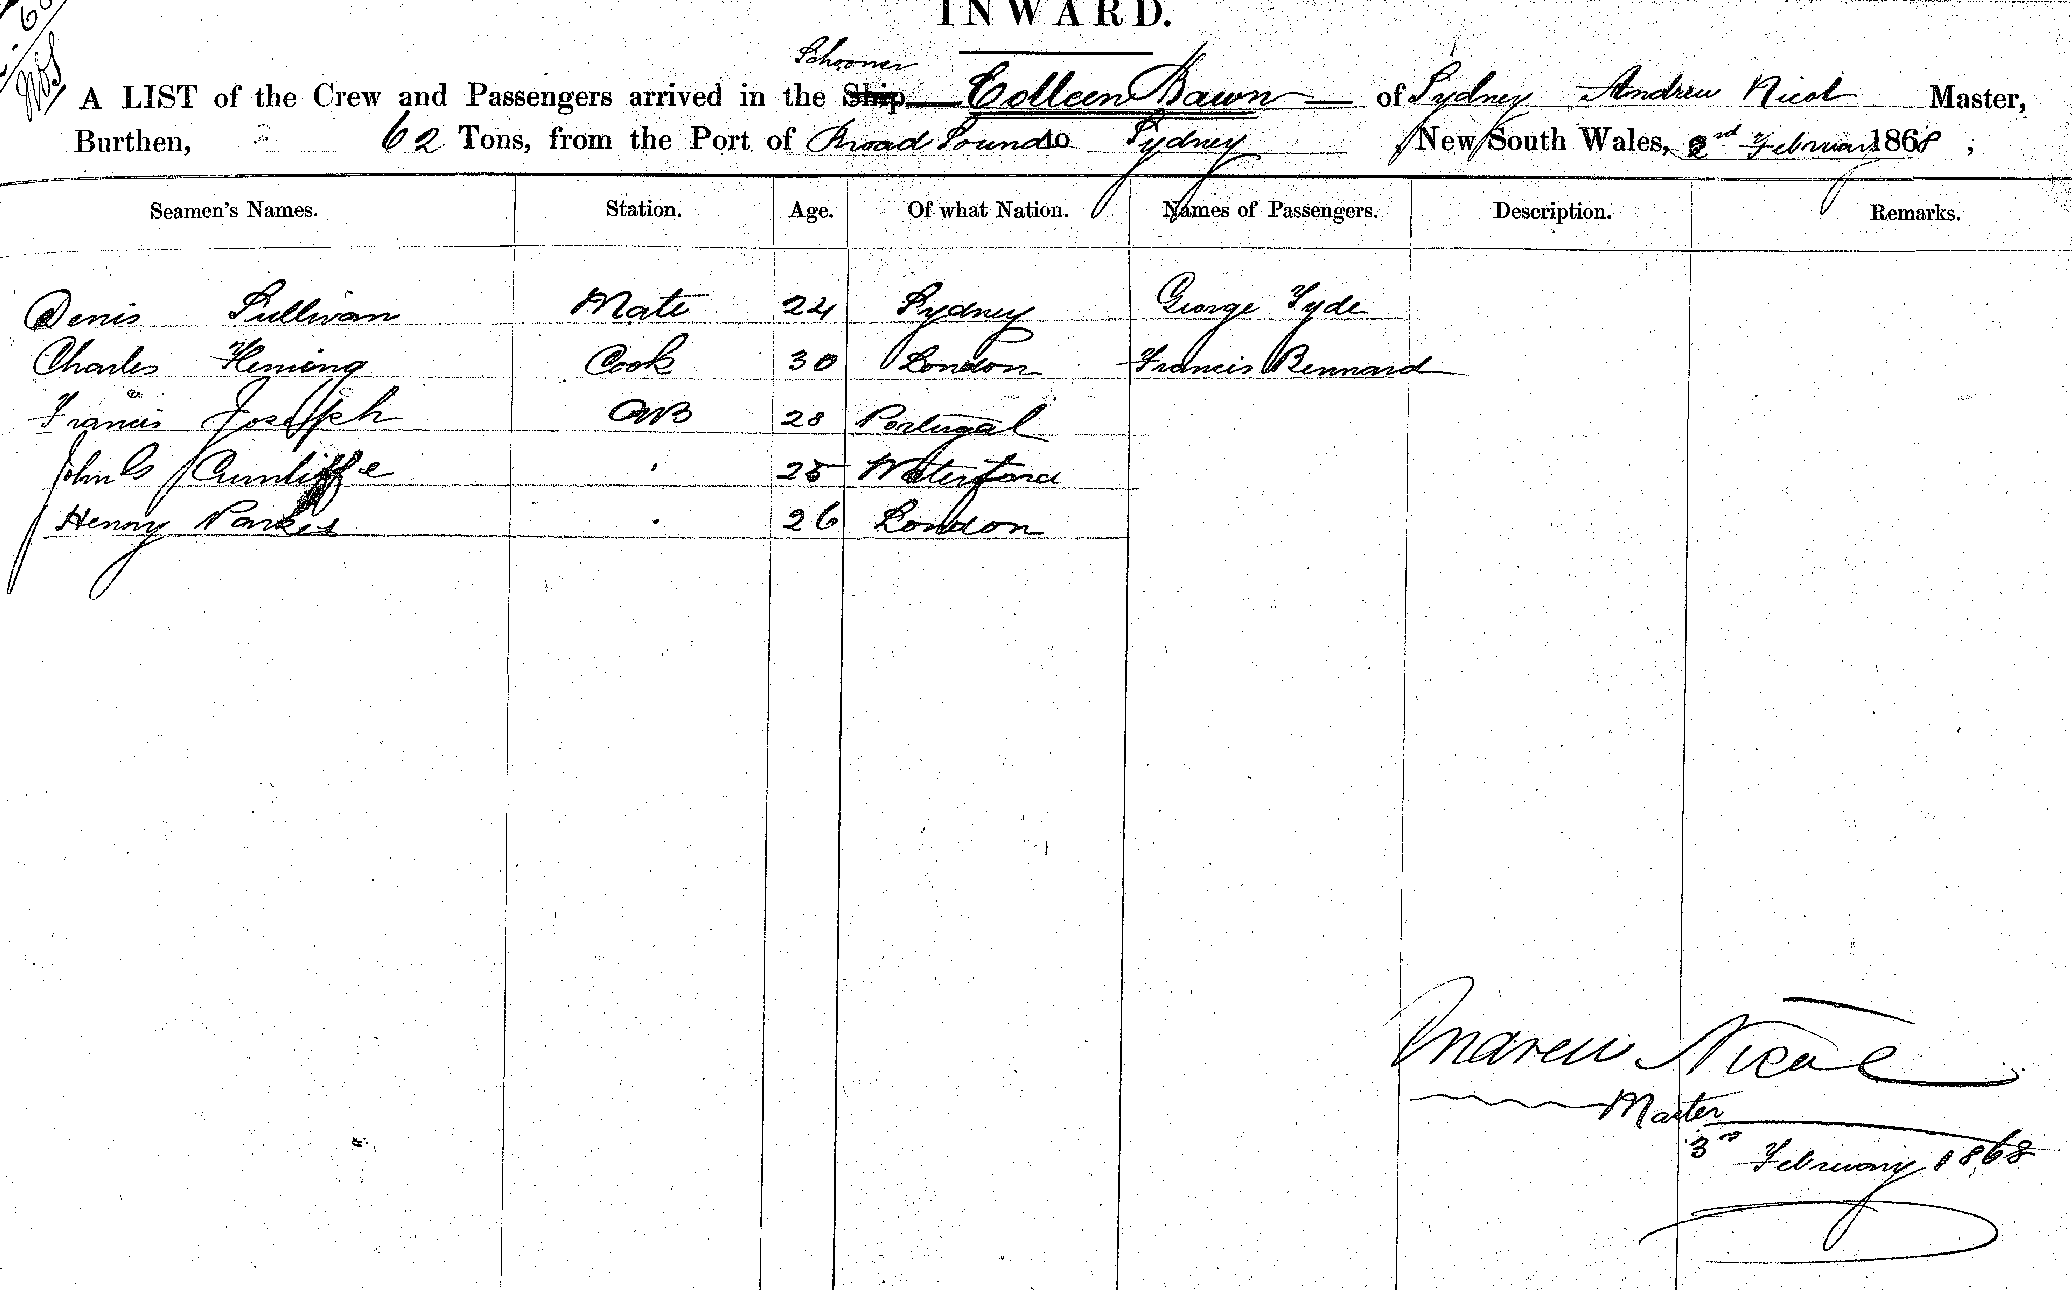 INWARD.
Schooner
A LIST of the Crew and Passengers arrived in the Ship Colleen Bawn of Sydney Andrew Nicol Master,
Burthen, 62 Tons, from the Port of Broad Sound to Sydney New South Wales, 2nd February 1868 ;
Seamen's Names. Station. Age. Of what Nation. Names of Passengers. Description. Remarks.
Denis Sullivan Mate 24 Sydney George Tyde
Charles Fleming Cook 30 London Francis Bennard
Francis Joseph AB 28 Portugal
John G Cunliffe 25 Waterford
Henry Parkes 26 London
Andrew Nicol
Master
3rd February 1868